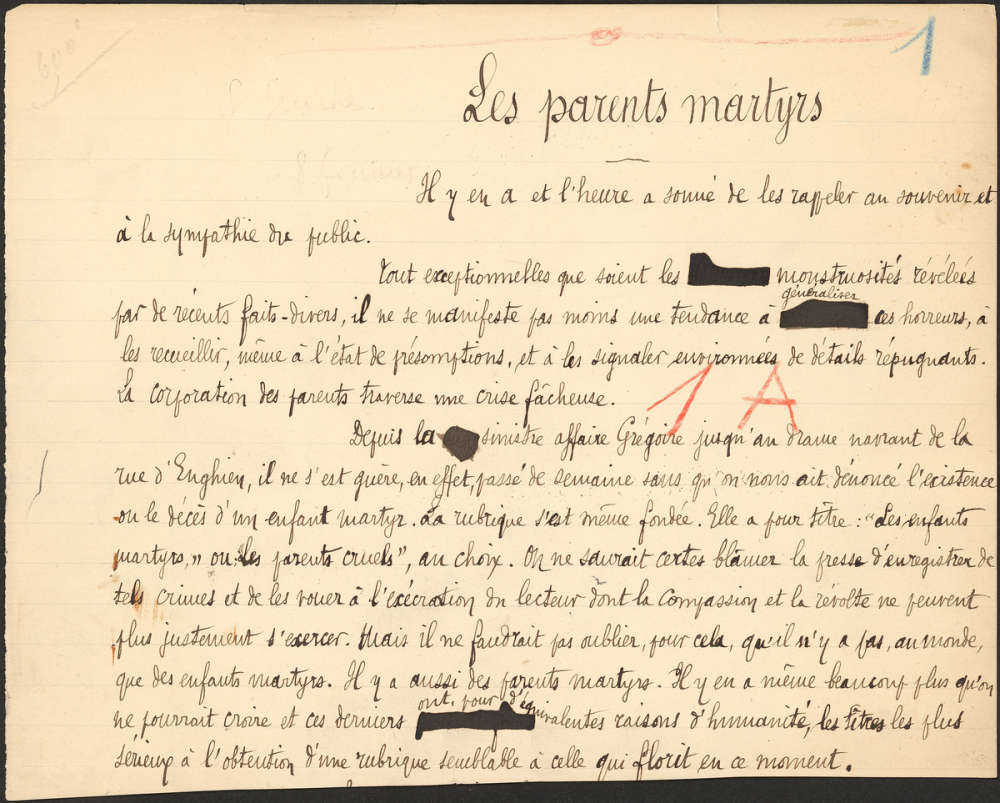 1
Les parents martyrs
Il y en a et l'heure a sonné de les rappeler au souvenir et
à la sympathie du public.
Tout exceptionnelles que soient les monstruosités révélées
généraliser
par de récents faits-divers, il ne se manifeste pas moins une tendance à ces horreurs, à
les recueillir, même à l'état de présomptions, et à les signaler environnées de détails répugnants.
La corporation des parents traverse une crise fâcheuse.
1 A
Depuis la sinistre affaire Grégoire jusqu'au drame navrant de la
rue d'Enghien, il ne s'est guère, en effet, passé de semaine sans qu'on nous ait dénoncé l'existence
ou le décès d'un enfant martyr. La rubrique s'est même fondée. Elle a pour titre : "Les enfants
martyrs," ou "Les parents cruels", au choix. On ne saurait certes blâmer la presse d'enregistrer de
tels crimes et de les vouer à l'exécration du lecteur dont la compassion et la révolte ne peuvent
plus justement s'exercer. Mais il ne faudrait pas oublier, pour cela, qu'il n'y a pas, au monde,
que des enfants martyrs. Il y a aussi des parents martyrs. Il y en a même beaucoup plus qu'on
ont, pour d'équivalentes
ne pourrait croire et ces derniers raisons d'humanité, les titres les plus
sérieux à l'obtention d'une rubrique semblable à celle qui florit en ce moment.